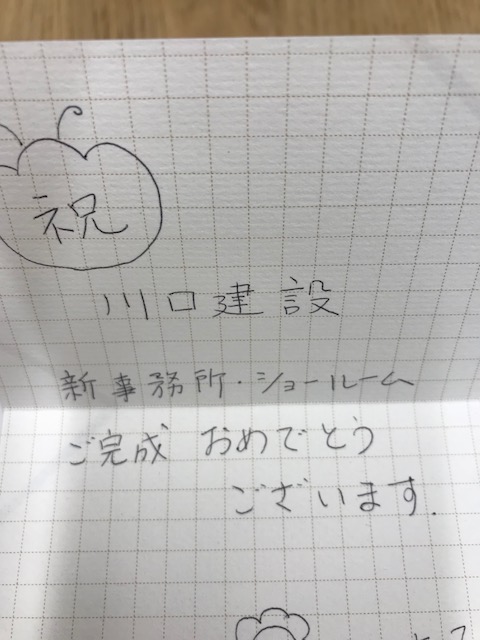 祝
川口建設
新事務所・ショールーム
ご完成 おめでとう
ございます.